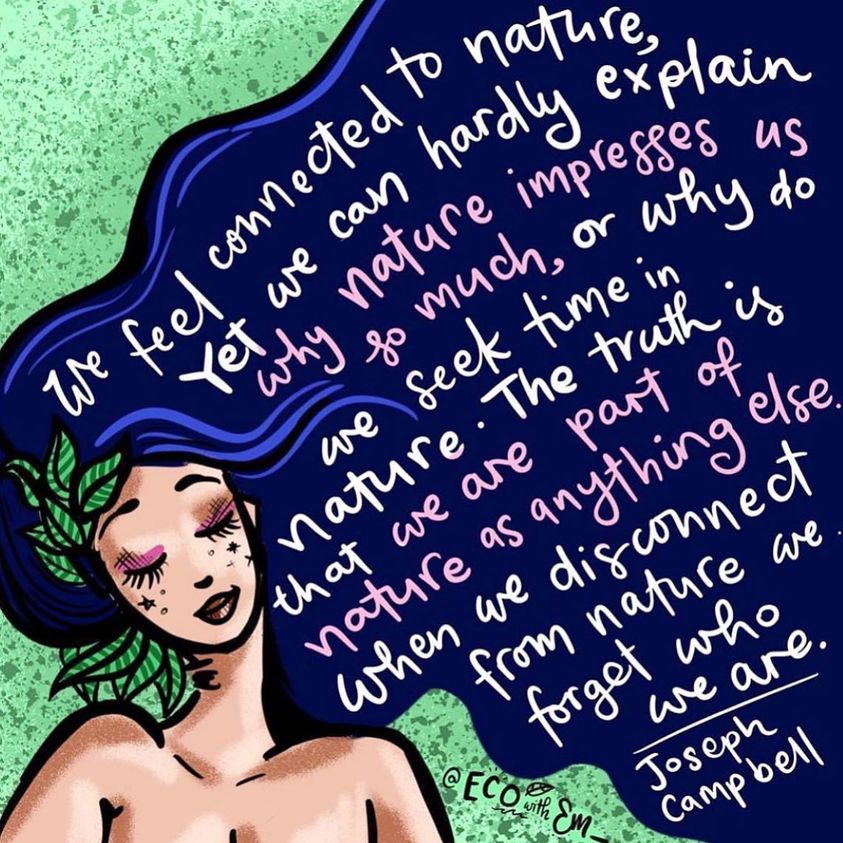 We feel connected to nature,
Yet we can hardly explain
why nature impresses us
so much, or why do
we seek time in
nature. The truth is
that we are part of
nature as anything else.
When we disconnect
from nature we
forget who
we are.
Joseph
Campbell
@ECO with Em_